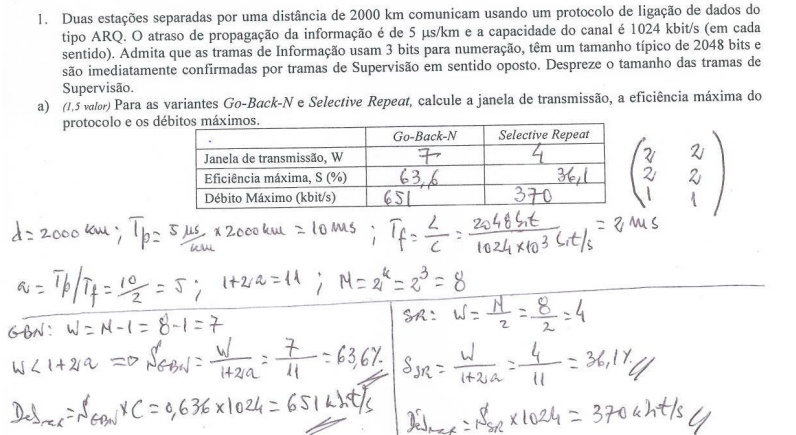 1. Duas estações separadas por uma distância de 2000 km comunicam usando um protocolo de ligação de dados do
tipo ARQ. O atraso de propagação da informação é de 5 μs/km e a capacidade do canal é 1024 kbit/s (em cada
sentido). Admita que as tramas de Informação usam 3 bits para numeração, têm um tamanho típico de 2048 bits e
são imediatamente confirmadas por tramas de Supervisão em sentido oposto. Despreze o tamanho das tramas de
Supervisão.
a) (1,5 valor) Para as variantes Go-Back-N e Selective Repeat, calcule a janela de transmissão, a eficiência máxima do
protocolo e os débitos máximos.
. Go-Back-N Selective Repeat
Janela de transmissão, W 7 4
Eficiência máxima, S (%) 63,6 36,1
Débito Máximo (kbit/s) 651 370
2 2
2 2
1 1
d = 2000 km ; Tp = 5 μs/km × 2000 km = 10 ms ; Tf = L/C = 2048 bit / 1024 × 10³ bit/s = 2 ms
a = Tp/Tf = 10/2 = 5 ; 1+2a = 11 ; M = 2^k = 2³ = 8
GBN: W = M - 1 = 8 - 1 = 7
W < 1+2a => S_GBN = W/1+2a = 7/11 = 63,6%
Deb_max = S_GBN × C = 0,636 × 1024 = 651 kbit/s
SR: W = M/2 = 8/2 = 4
S_SR = W/1+2a = 4/11 = 36,1%
Deb_max = S_SR × 1024 = 370 kbit/s